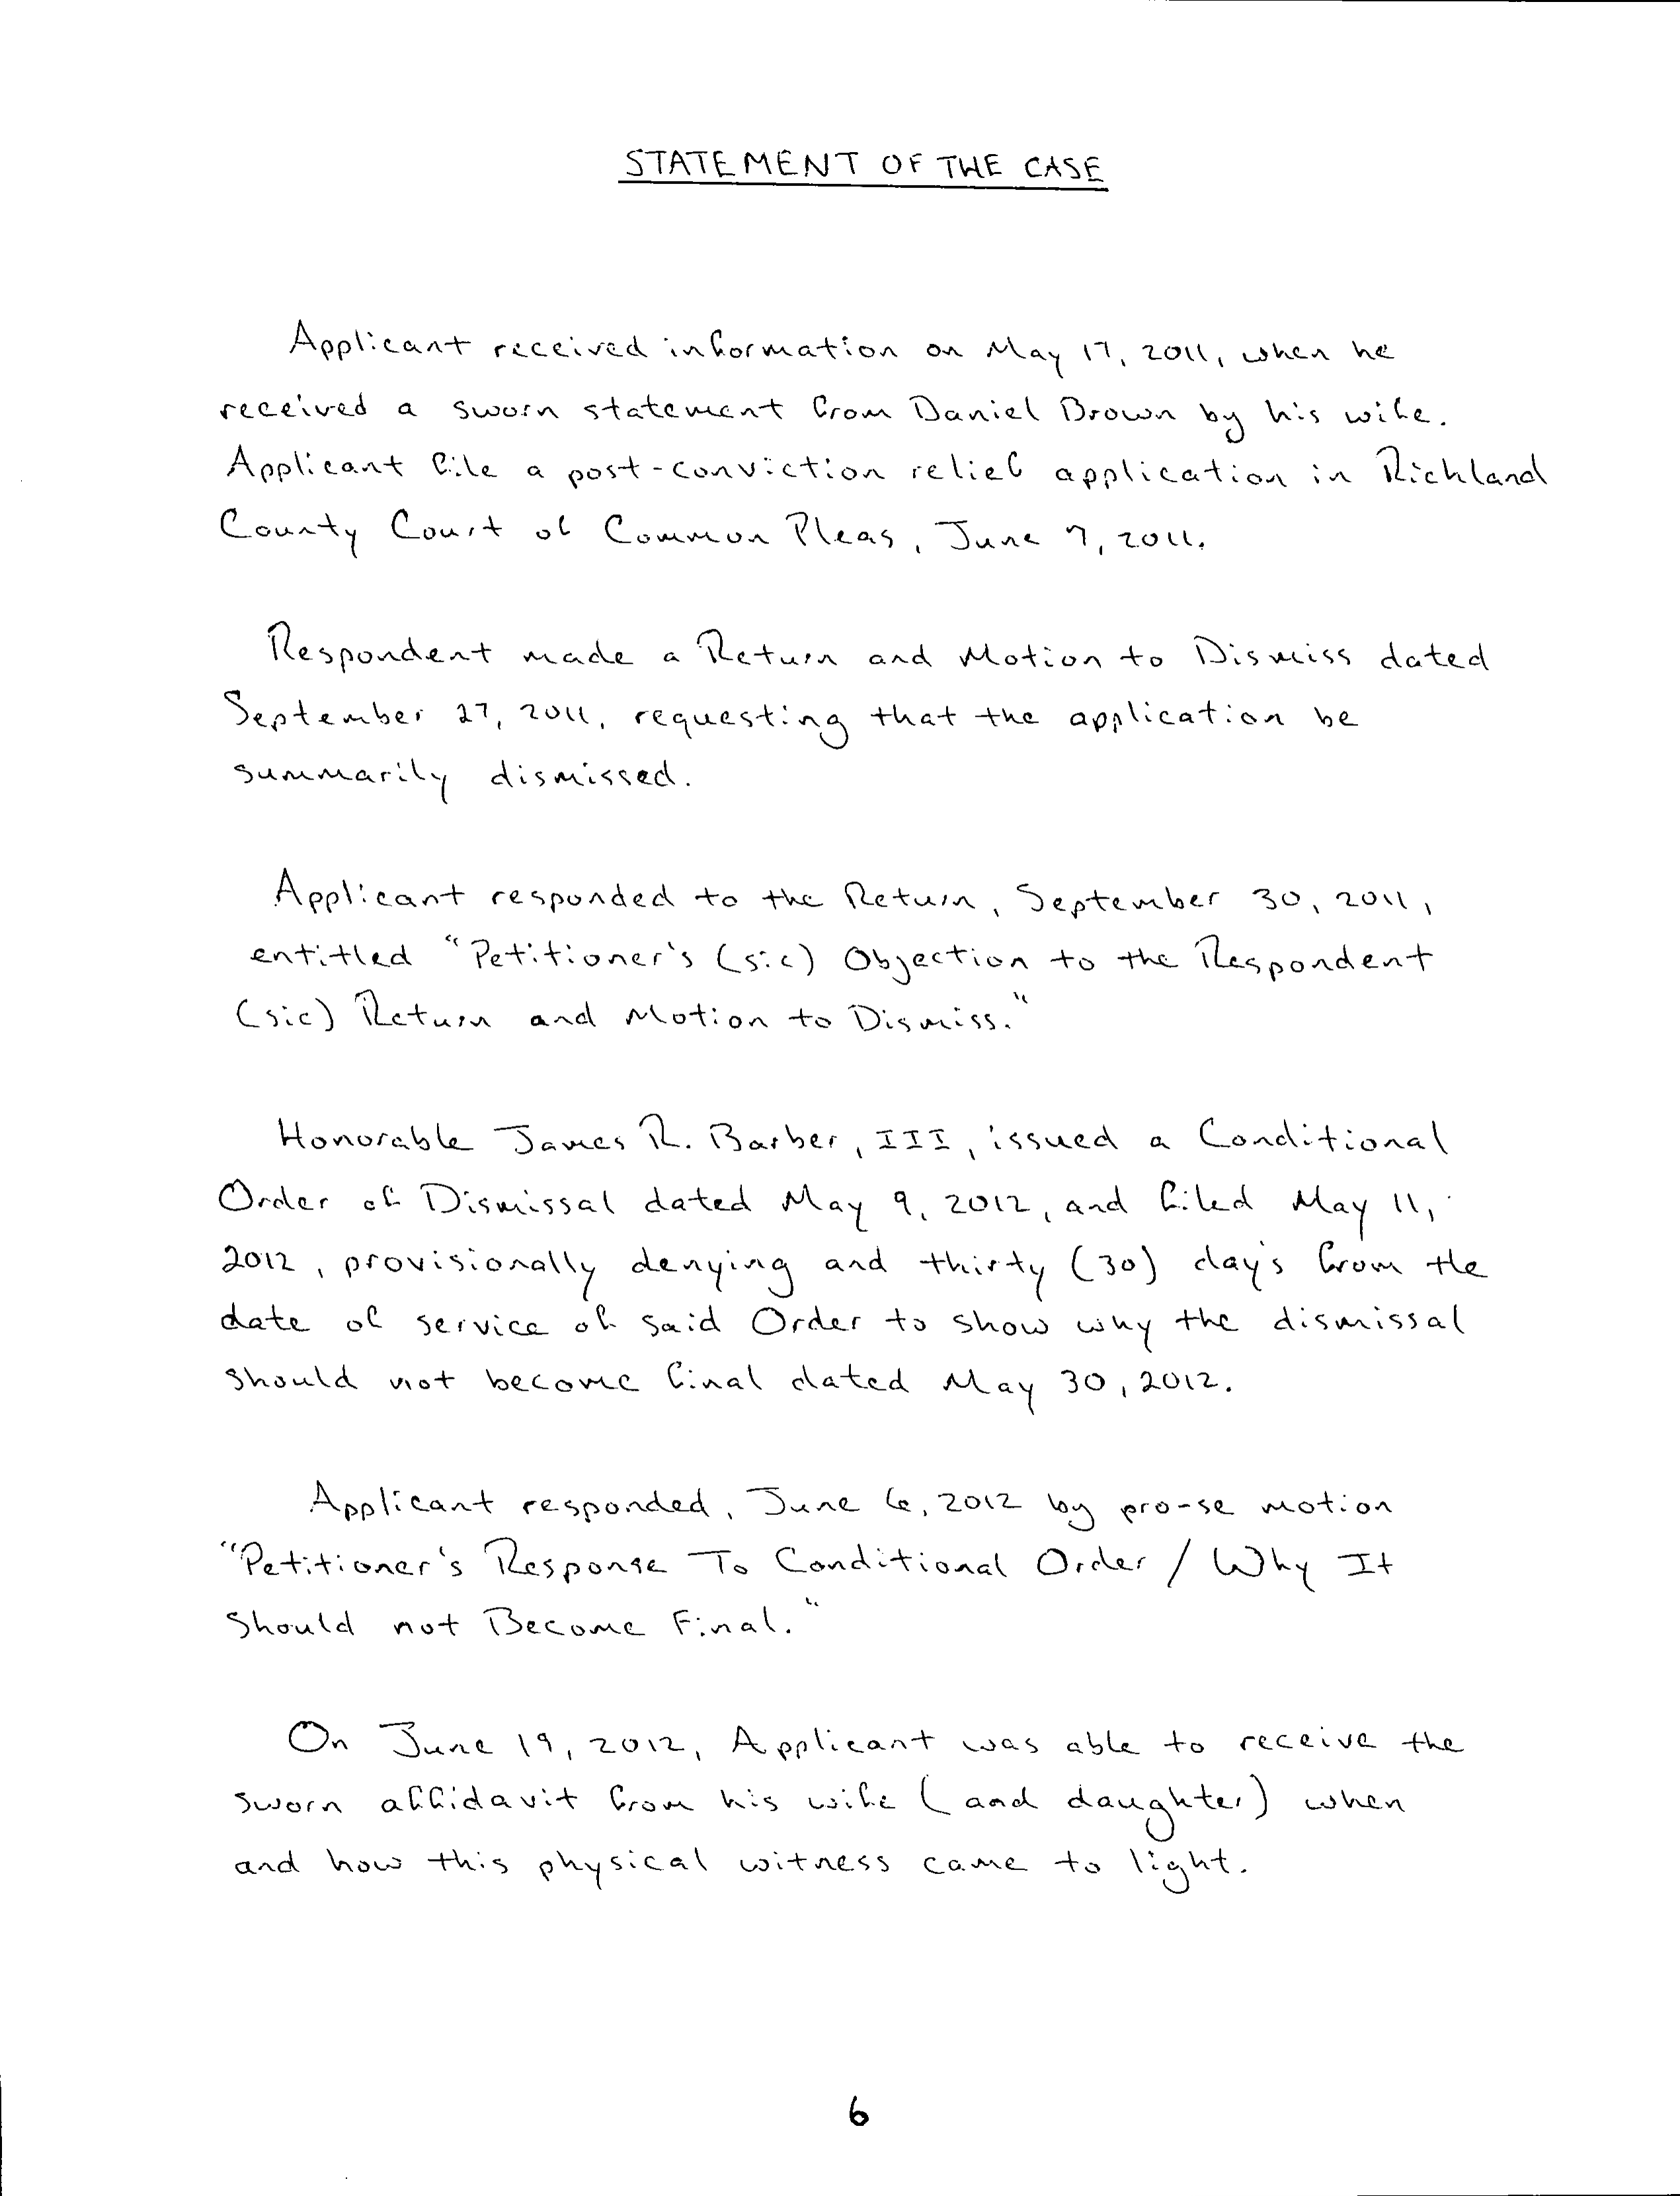 STATEMENT OF THE CASE
Applicant received information on May 17, 2011, when he
received a sworn statement from Daniel Brown by his wife.
Applicant file a post-conviction relief application in Richland
County Court of Common Pleas, June 7, 2011.
Respondent made a Return and Motion to Dismiss dated
September 27, 2011, requesting that the application be
summarily dismissed.
Applicant responded to the Return, September 30, 2011,
entitled "Petitioner's (sic) Objection to the Respondent
(sic) Return and Motion to Dismiss."
Honorable James R. Barber, III, issued a Conditional
Order of Dismissal dated May 9, 2012, and filed May 11,
2012, provisionally denying and thirty (30) days from the
date of service of said Order to show why the dismissal
should not become final dated May 30, 2012.
Applicant responded, June 6, 2012 by pro-se motion
"Petitioner's Response To Conditional Order / Why It
Should not Become Final."
On June 19, 2012, Applicant was able to receive the
sworn affidavit from his wife (and daughter) when
and how this physical witness came to light.
6